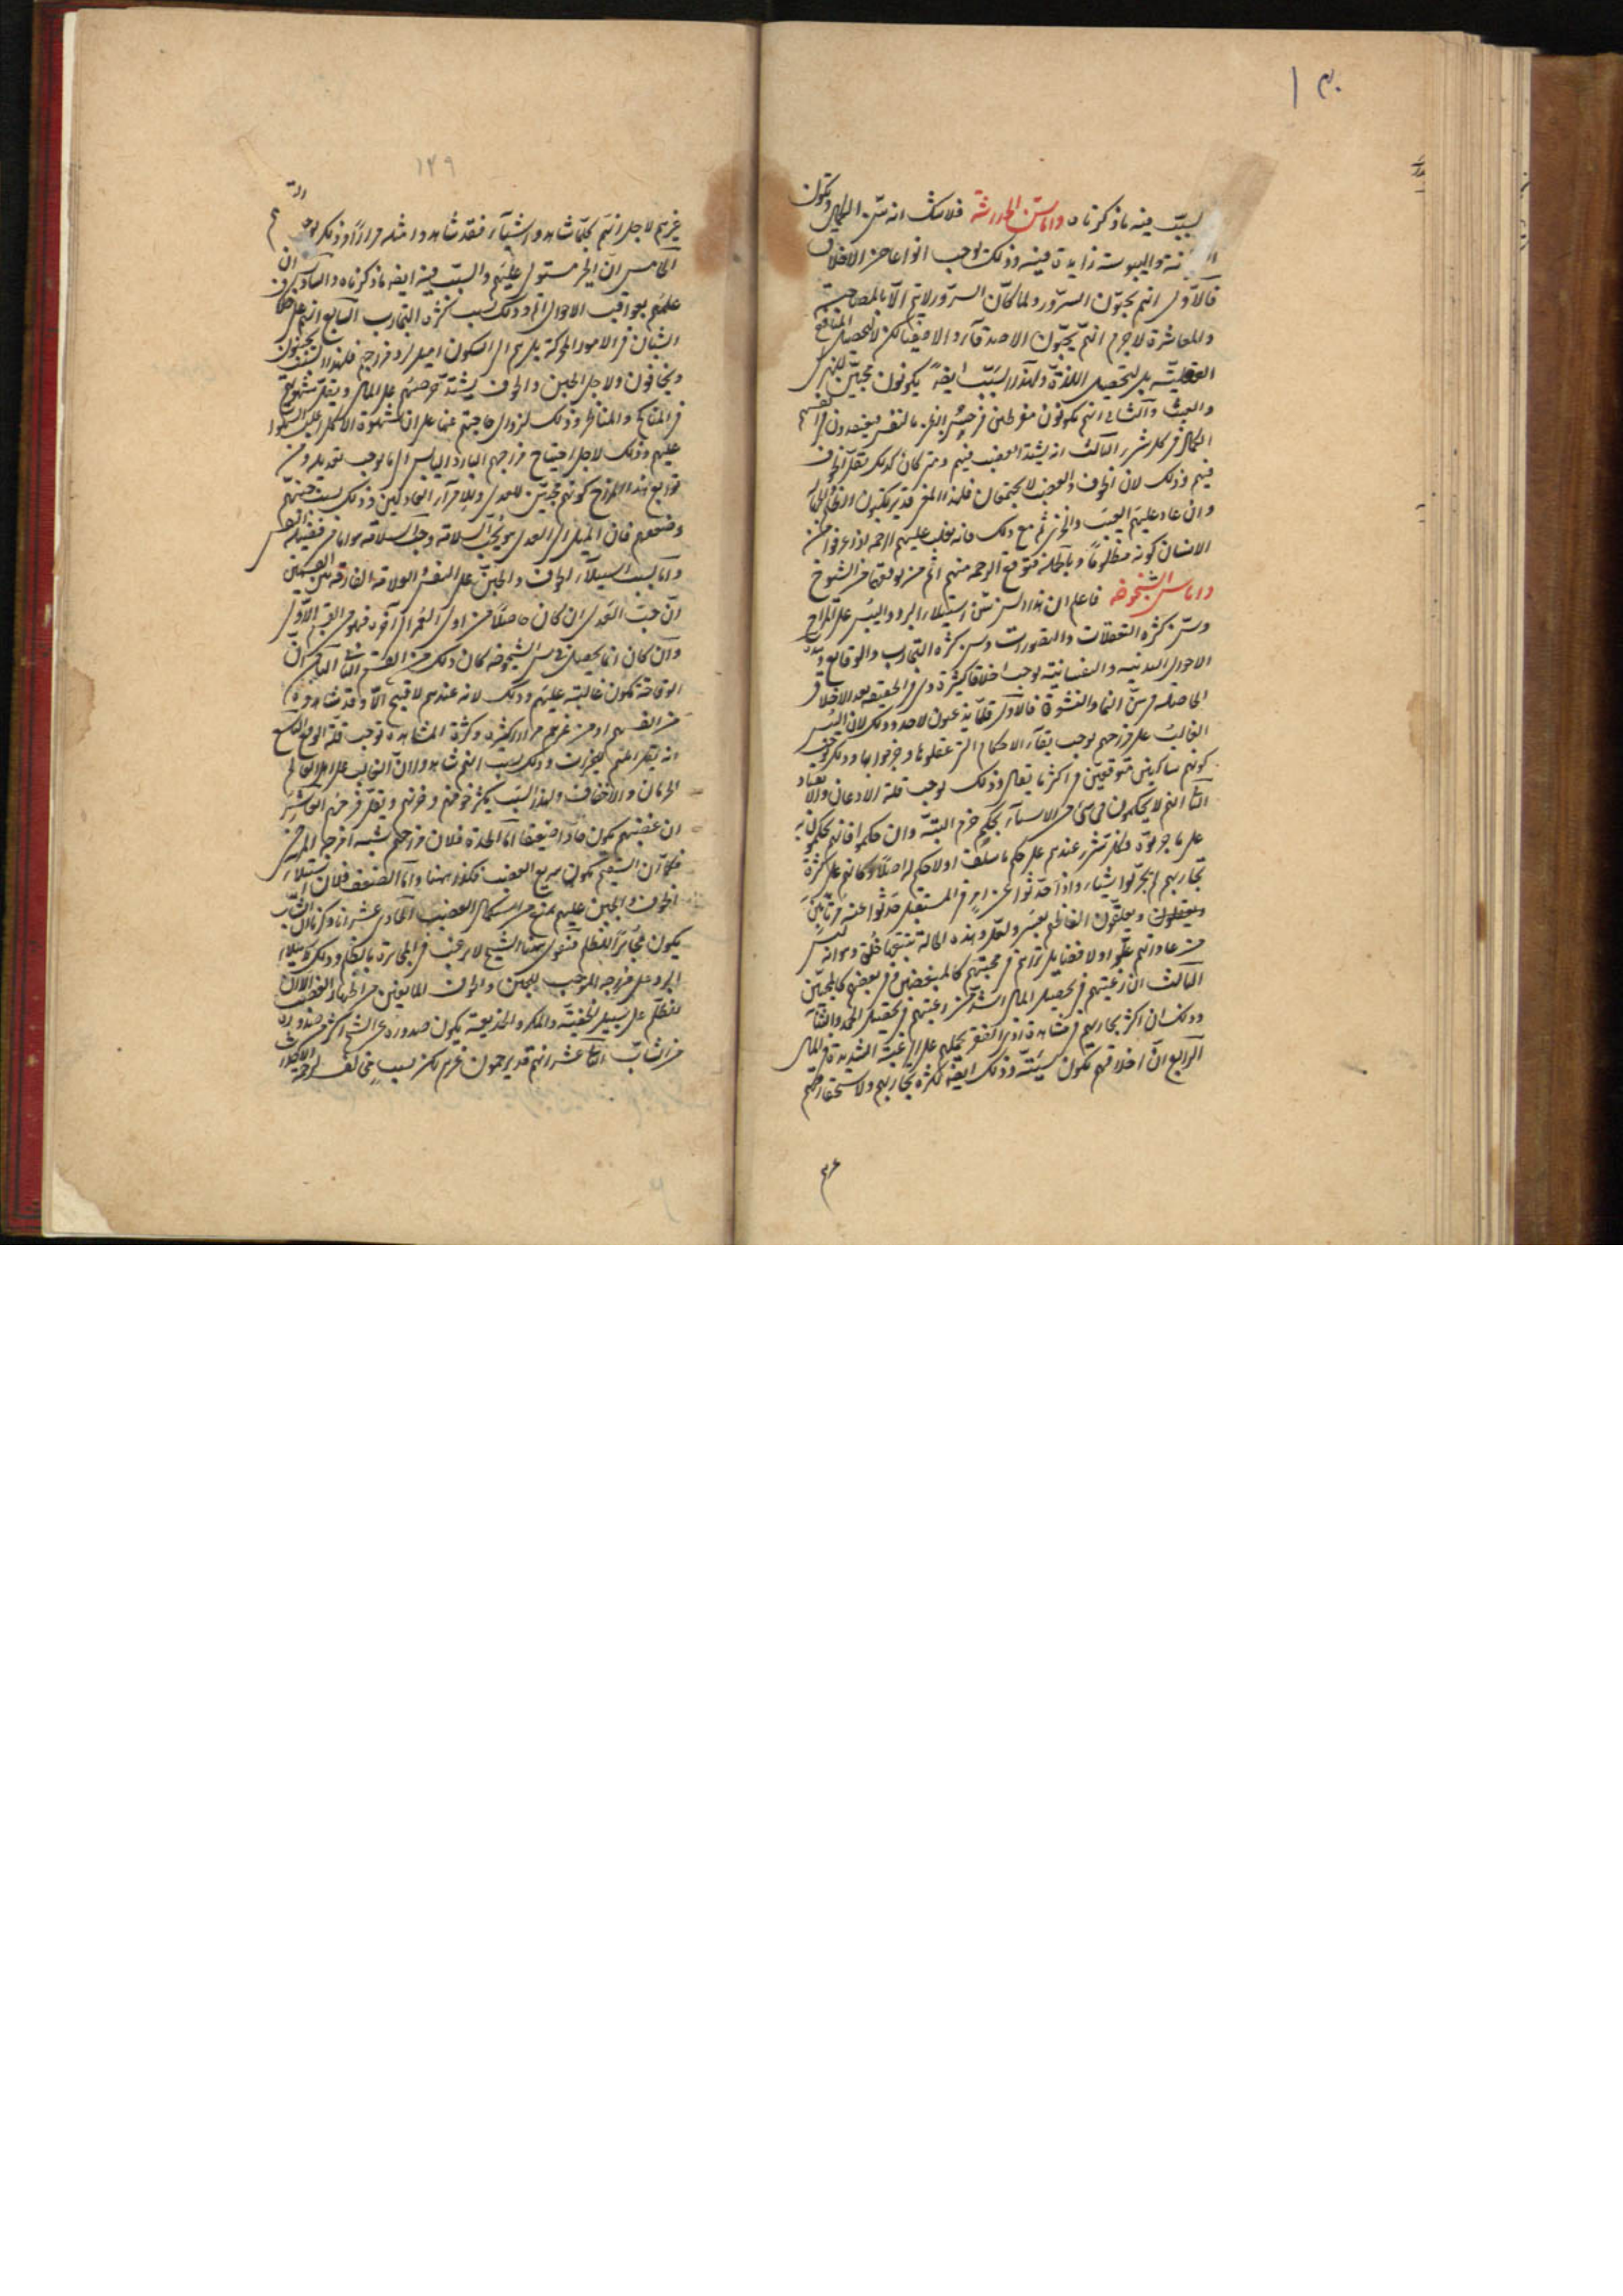 السبب فيه ما ذكرناه واما سن الحداثة فلا شك انه سن الكمال وتكون
السخونة واليبوسة زايدة فيه وذلك يوجب انواعا من الاخلاق
فالاول انهم يحبون السرور ولما كان السرور لا يتم الا بالمصاحبة
والمعاشرة لا جرم انهم يحبون الاصدقاء والا لا لتحصيل المنافع
العقلية بل لتحصيل اللذة ولهذا السبب ايضا يكونون محبين للهزل
والعبث والثاني انهم يكونون مفرطين في حسن الظن بالنفس فيعتقدون في انفسهم
الكمال في كل شيء الثالث انه يشتد الغضب فيهم ومتى كان كذلك يقل الخوف
فيهم وذلك لان الخوف والغضب لا يجتمعان فلهذا المعنى قد يرتكبون الظلم
وان عاد عليهم العيب والخزي ثم مع ذلك فانه يغلب عليهم الرحمة اذا عرفوا من
الانسان كونه مظلوما وبالجملة فتوقع الرحمة منهم اتم من توقعها من الشيوخ
واما سن الشيخوخة فاعلم ان هذا السن سن استيلاء البرد واليبس على المزاج
وسن كثرة التعقلات والتصورات وسن كثرة التجارب والوقايع وهذه
الاحوال البدنية والنفسانية توجب اخلاقا كثيرة وهي في الحقيقة ضد الاخلاق
الحاصلة في سن النماء والنشوة فالاول قلما يذعنون لاحد وذلك لان اليبس
الغالب على مزاجهم يوجب بقاء الاحكام التي عقلوها وجزموا بها وذلك يوجب
كونهم شاكين متوقفين في اكثر ما يقال وذلك يوجب قلة الاذعان والانقياد
الثاني انهم لا يحكمون في شيء من الاشياء بحكم جزم البتة وان حكموا فانهم يحكمون به
على ما جربوه وكل شيء عندهم على حكم ما سلف او لا حكم له اصلا وكانهم على كثرة
تجاربهم لم يجربوا شيئا واذا حدثوا عن امر في المستقبل حدثوا عنه مرتابين
ويعقلون ويعلقون الفاظهم بعسى ولعل وهذه الحالة ينتجها خلق وهو انه ليس
من عاداتهم غلو ولا فضايل تراهم في محبتهم كالمبغضين وفي بغضهم كالمحبين
الثالث ان رغبتهم في تحصيل المال اشد من رغبتهم في تحصيل الحمد والثناء
وذلك ان اكثر تجاربهم في مشاهدة اذى الفقر يحملهم على الرغبة الشديدة في المال
الرابع ان اخلاقهم تكون سيئة وذلك ايضا لكثرة تجاربهم ولاستحقارهم
غيرهم
١٤٩
غيرهم لاجل انهم كلما شاهدوا شيئا فقد شاهدوا مثله مرارا وذلك يوجب
الخامس ان الخير مستول عليهم والسبب فيه ايضا ما ذكرناه والسادس ان
علمهم بعواقب الاحوال اتم وذلك بسبب كثرة التجارب السابع انهم على خلاف
الشبان في الامور الحركة بل هم الى السكون اميل لبرد مزاجهم فلهذا السبب يجبنون
ويخافون ولاجل الجبن والخوف يشتد حرصهم على المال ويقل شهوتهم
في المناكح والمناظر وذلك لزوال حاجتهم عنها على ان شهوة الاكل اغلب
عليهم وذلك لاجل احتياج مزاجهم البارد اليابس الى ما يوجب تعديله ومن
توابع هذا المزاج كونهم محبين للعدل وذلك بسبب جبنهم
وضعفهم فان الميل الى العدل هو لحب السلامة وحب السلامة هو اما من فضيلة النفس
واما لسبب استيلاء الخوف والجبن على النفس والعلامة الفارقة بين القسمين
ان حب العدل ان كان حاصلا من اول العمر الى آخره فهو من القسم الاول
وان كان انما يحصل في سن الشيخوخة كان ذلك من القسم الثاني الثامن ان
الوقاحة تكون غالبة عليهم وذلك لانه عندهم لا قبيح الا وقد شاهدوه
من انفسهم او من غيرهم مرارا كثيرة وكثرة المشاهدة توجب قلة الوقع التاسع
انه يقل املهم للخيرات وذلك بسبب انهم شاهدوا ان الغالب على اهل العالم
الحرمان والاخفاق ولهذا السبب يكثر خوفهم وحزنهم ويقل فرحهم العاشر
ان غضبهم يكون حادا ضعيفا اما الحدة فلان مزاجهم شبيه امزجة المرضى
فكما ان السقيم يكون سريع الغضب فكذا ههنا واما الضعف فلان استيلاء
الخوف والجبن عليهم يمنع من استكمال الغضب الحادي عشر انا ذكرنا ان الشاب
يكون مجاهرا للظلم فنقول ههنا الشيخ لا يرغب في المجاهرة بالظلم وذلك لاستيلاء
البرد على مزاجه الموجب للجبن والخوف المانعين من اظهار الغضب الا ان
الظلم على سبيل الخفية والمكر والخديعة يكون صدوره عن الشيخ اكثر من صدوره
من الشاب الثاني عشر انهم قد يرحمون غيرهم لكن لسبب مخالف لرحمة الاحداث